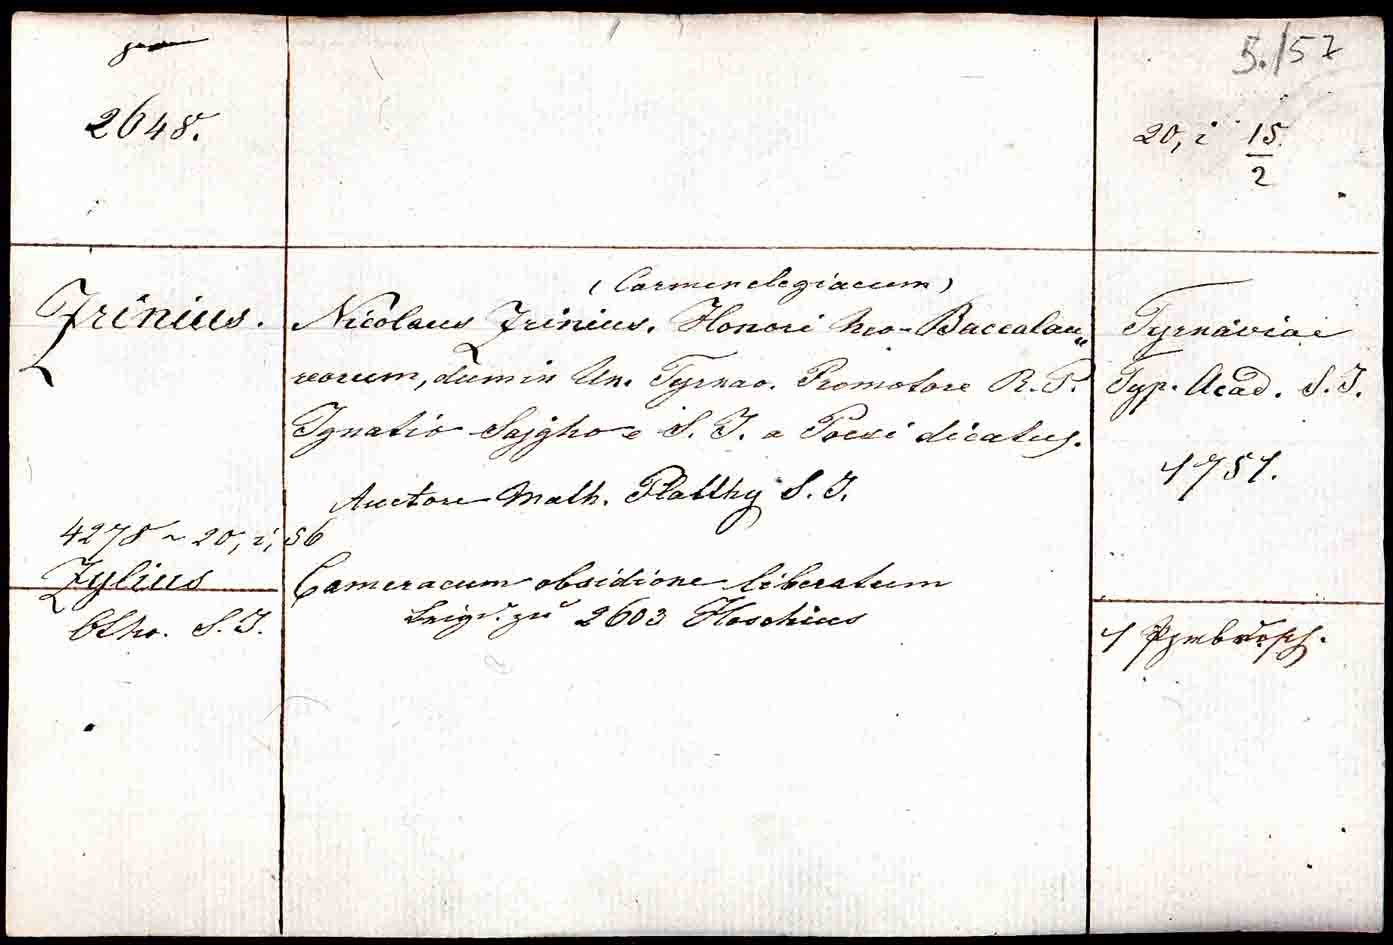 2648.
5./57
20, i 15/2
Zrinius.
(Carmen elegiacum)
Nicolaus Zrinius. Honori Neo-Baccalau„
reorum, dum in Un. Tyrnav. Promotore R. P.
Ignatio Sajgho e S. J. a Poesi dicatus.
Auctore Math. Platthy S. J.
Tyrnaviae
Typ. Acad. S. J.
1751.
4278 ~ 20, i, 56
Zylius
Otho. S. J.
Cameracum obsidione liberatum
zu 2603 Hoschius
1